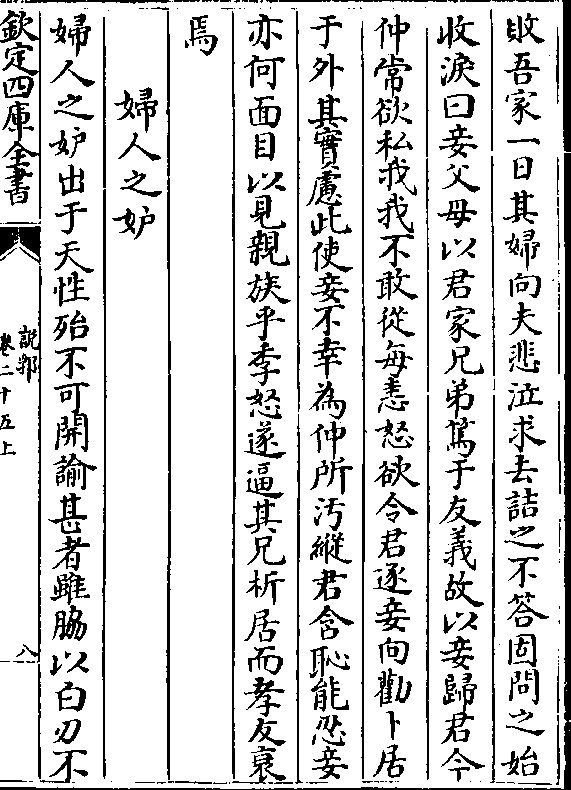 敗吾家一日其婦向夫悲泣求去詰之不答固問之始
收淚曰妾父母以君家兄弟篤于友義故以妾歸君今
仲常欲私我我不敢從每恚怒欲令君逐妾向勸卜居
于外其實慮此使妾不幸為仲所汚縱君含恥能忍妾
亦何面目以見親族乎季怒遂逼其兄析居而孝友衰
焉
婦人之妒
婦人之妒出于天性殆不可開諭甚者雖脇以白刃不
欽定四庫全書
說郛
卷二十五上
八